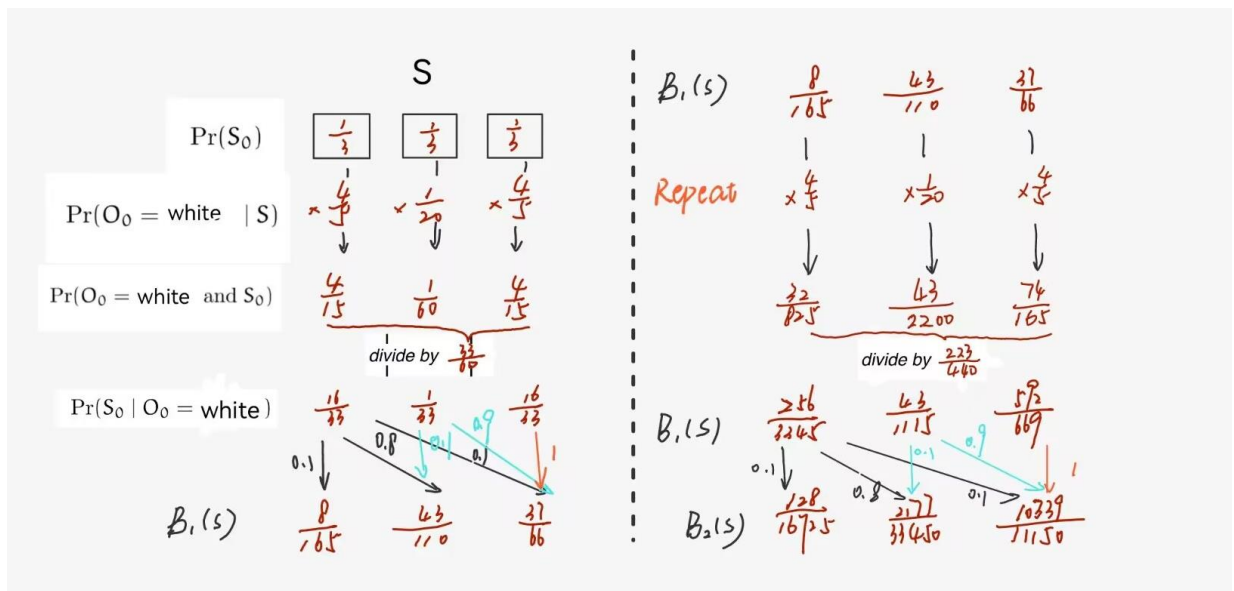 S
Pr(S₀) 1/3 1/3 1/3
Pr(O₀ = white | S) × 4/5 × 1/20 × 4/5
Pr(O₀ = white and S₀) 4/15 1/60 4/15
divide by 33/60
Pr(S₀ | O₀ = white) 16/33 1/33 16/33
0.1 0.8 0.1 0.9 0.1 1
B₁(s) 8/165 43/110 37/66
B₁(s) 8/165 43/110 37/66
Repeat × 4/5 × 1/20 × 4/5
32/825 43/2200 74/165
divide by 223/440
B₁(s) 256/3345 43/1115 592/669
0.1 0.8 0.1 0.1 0.9 1
B₂(s) 128/16725 2177/33450 10339/11150